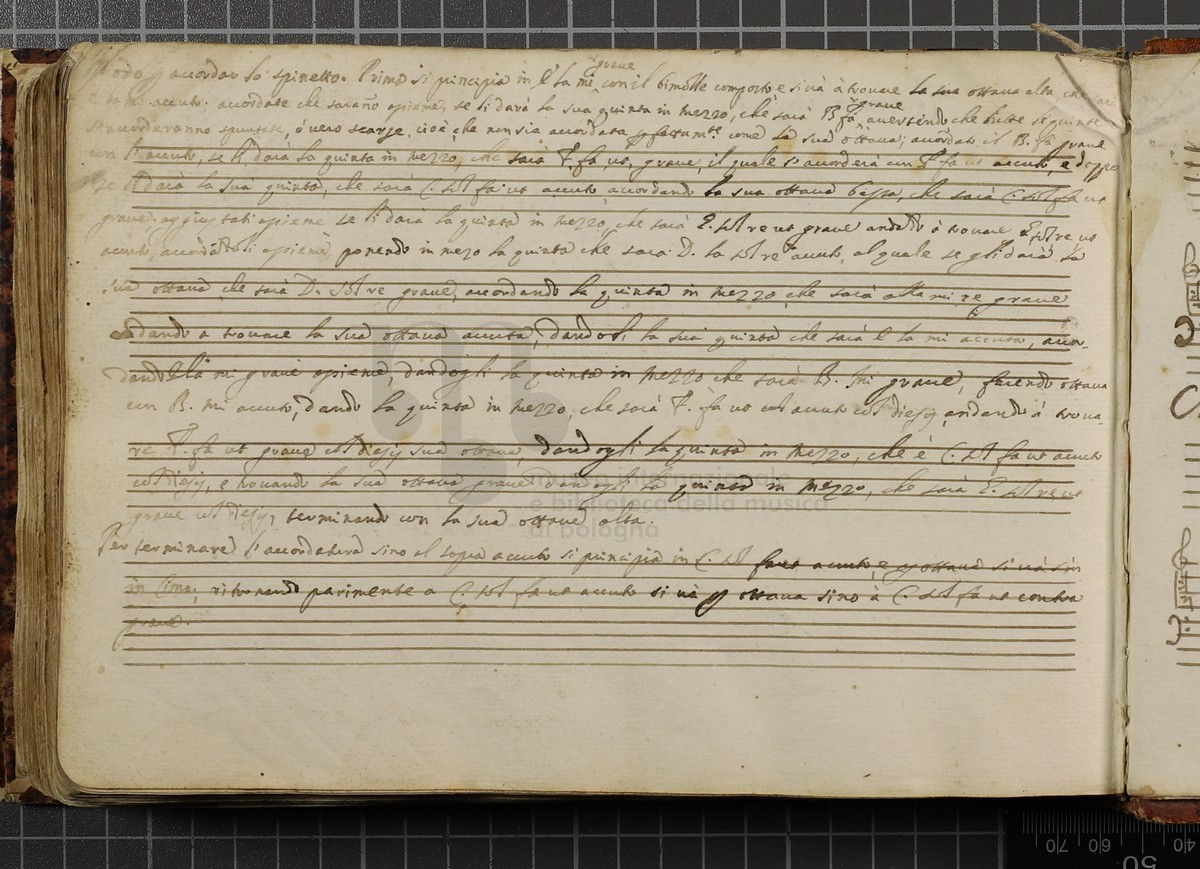 Modo p accordar la spinetta. Primo si principia in E la mi grave con il bimolle composto e si và à trovare la sua ottava alta che sarà
e la mi accuto. accordate che sarano assieme, se li darà la sua quinta in mezzo, che sarà B fa grave avertendo che tutte le quinte
s'accorderanno spuntate, ò vero scarse, cioè che non sia accordata perfettamte come la sua ottava; accordato il B. fa grave
con l'accuto, se li darà la quinta in mezzo, che sarà F. fa ut, grave, il quale s'accorderà con F fa ut accuto, e doppo
se li darà la sua quinta, che sarà C. sol fa ut accuto accordando la sua ottava bassa, che sarà C. sol fa ut
grave. aggiustati assieme se li darà la quinta in mezzo, che sarà G. sol re ut grave andando à trovare G sol re ut
accuto, accordateli assieme, ponendo in mezo la quinta che sarà D. la sol re accuto, al quale se gli darà la
sua ottava che sarà D. sol re grave, accordando la quinta in mezzo che sarà alla mi re grave
andando a trovare la sua ottava accuta, dandoli la sua quinta che sarà E la mi accuta, acor-
dando Ela mi grave assieme, dandogli la quinta in mezzo che sarà B. mi grave, facendo ottava
con B. mi accuto, dando la quinta in mezzo, che sarà F. fa ut accuto col diesis, andando à trova-
re F. fa ut grave col Diesis sua ottava dandogli la quinta in mezzo, che è C. sol fa ut accuto
col Diesis, e trovando la sua ottava grave dandogli la quinta in mezzo, che sarà G. sol re ut
grave col Diesis, terminando con la sua ottava alta.
Per terminare l'accordatura sino al sopra accuto si principia in C. sol fa ut accuto, e p ottava si và sin
in cima; ritornando parimente a C. sol fa ut accuto si và p ottava sino à C. sol fa ut contra
grave.
museo internazionale
e biblioteca della musica
di bologna
40
50
60
70